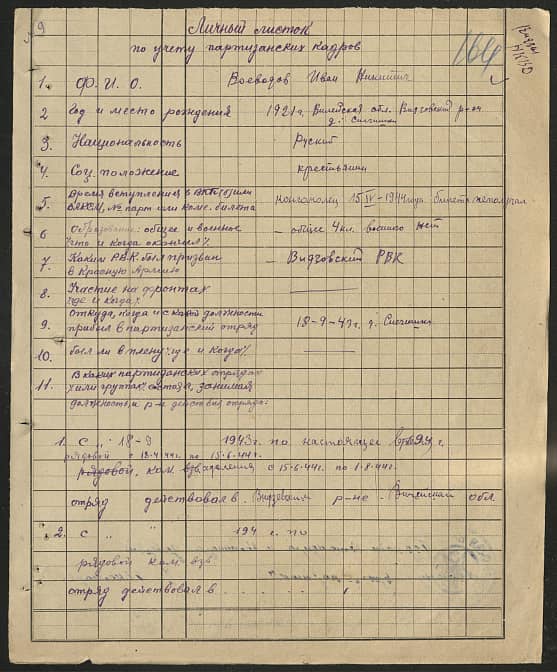 9
Личный листок
по учету партизанских кадров
1. Ф. И. О. Воеводов Иван Никитич
2 Год и место рождения 1921 г. Вилейская обл. Видзовский р-он
д.
3. Национальность Руский
4. Соц. положение крестьянин
5. Время вступления в ВКП(б) или комсомолец 15 IV - 1944 года. билет не получал
ВЛКСМ, № парт или комс. билета
6 Образование: общее и военное - общее 4 кл. военно нет
что и когда окончил
7. Каким РВК был призван - Видзовский РВК
в Красную Армию
8. Участие на фронтах
где и когда
9. Откуда, когда и с какой должности
прибыл в партизанский отряд 18-9-43 г.
10. был ли в плену где и когда
11. В каких партизанских отрядах
или группах состоял, занимая
должность, и р-н действия отряда:
1. с „ 18-9 1943 г. по настоящее время г.
рядовой с по 15-6-44 г.
рядовой, ком. отделения с 15-6-44 г. по 1-8-44 г.
отряд действовал в. Видзовском р-не. Вилейской обл.
2. с „ „ 194 г. по
рядовой ком. взв
отряд действовал в